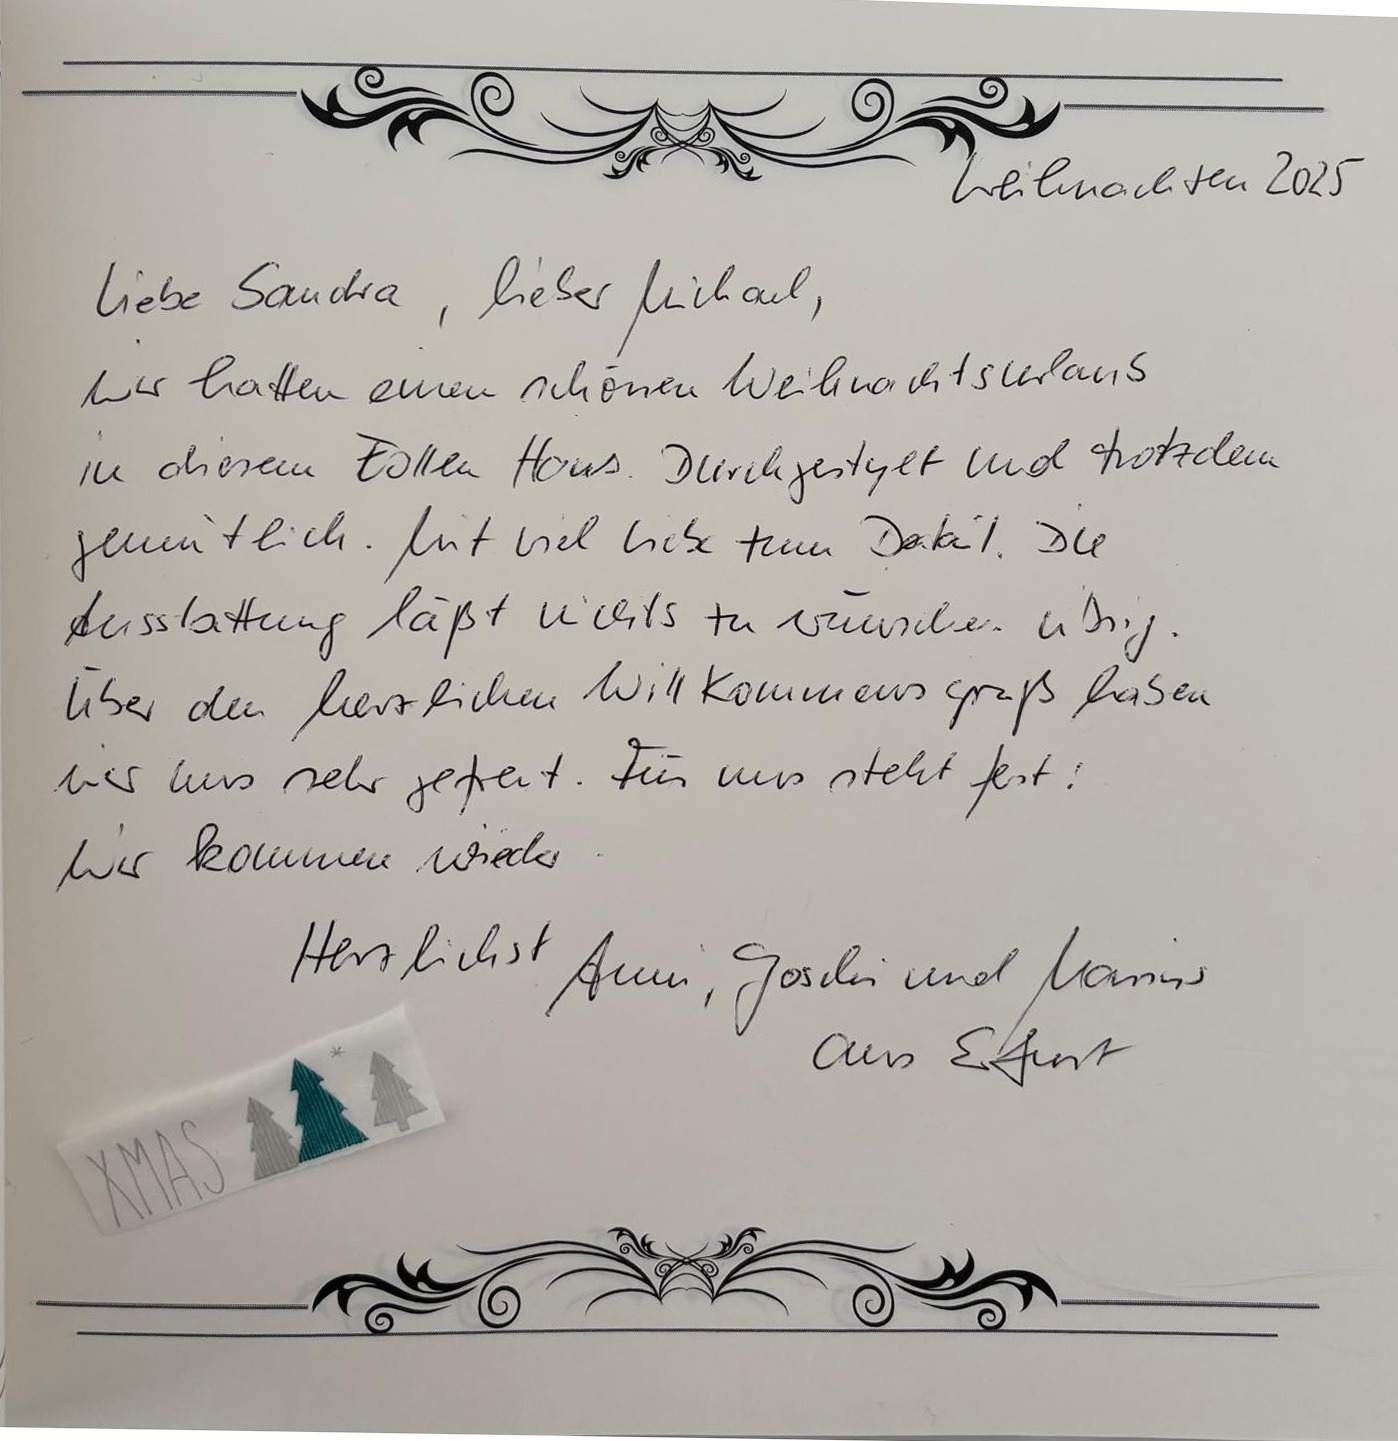 Weihnachten 2025
Liebe Sandra, lieber Michael,
wir hatten einen schönen Weihnachtsurlaub
in diesem tollen Haus. Durchgestylt und trotzdem
gemütlich. Mit viel Liebe zum Detail. Die
Ausstattung läßt nichts zu wünschen übrig.
Über den herzlichen Willkommensgruß haben
wir uns sehr gefreut. Für uns steht fest:
Wir kommen wieder.
Herzlichst Anni, und
aus Erfurt
XMAS